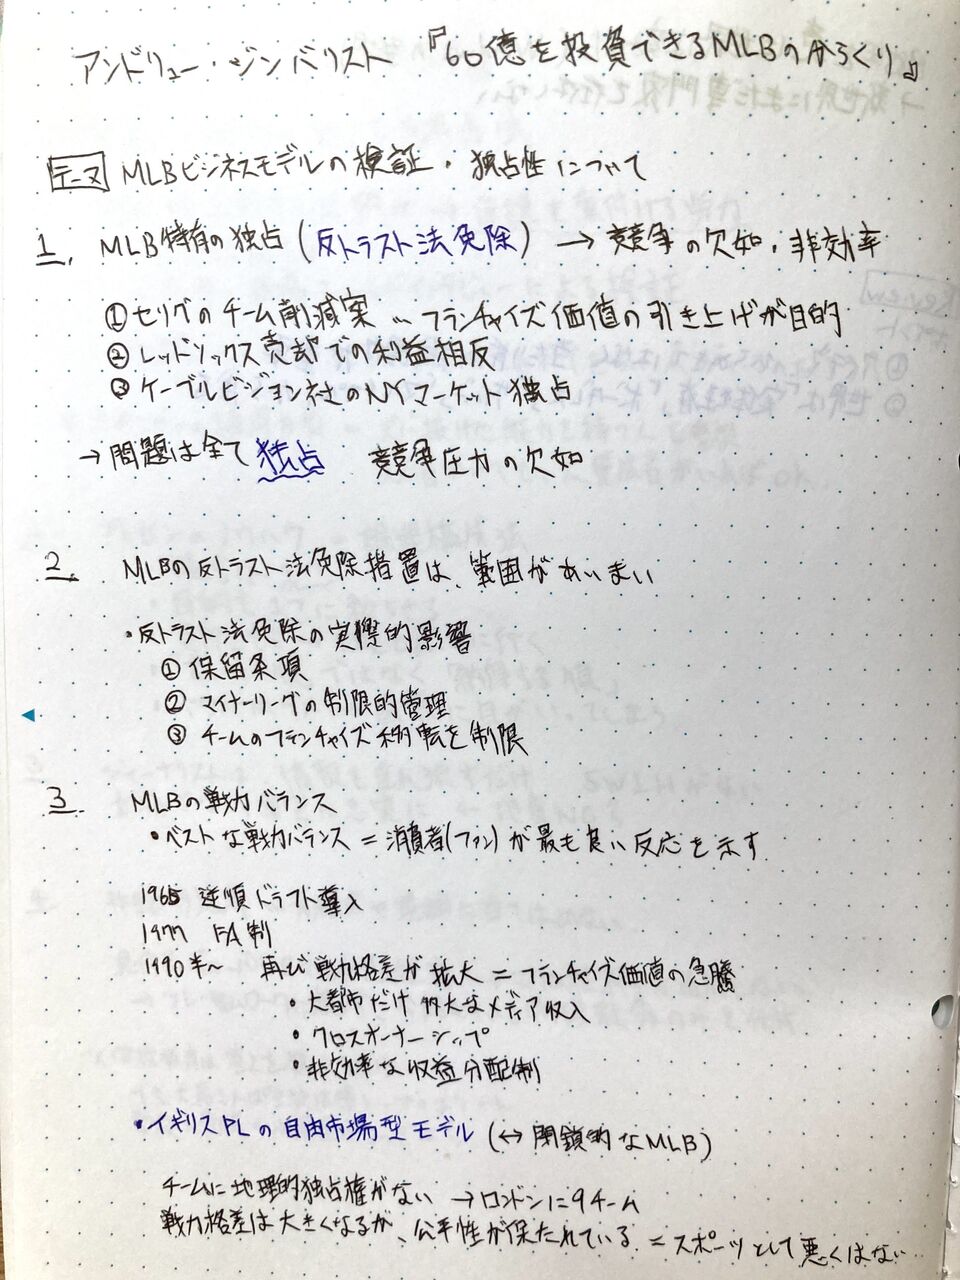 アンドリュー・ジンバリスト 『60億を投資できるMLBのからくり』
テーマ MLBビジネスモデルの検証・独占性について
1. MLB特有の独占（反トラスト法免除）→ 競争の欠如・非効率
① セリグのチーム削減案 … フランチャイズ価値の引き上げが目的
② レッドソックス売却での利益相反
③ ケーブルビジョン社のNYマーケット独占
→ 問題は全て独占 競争圧力の欠如
2. MLBの反トラスト法免除措置は、範囲があいまい
・反トラスト法免除の実際的影響
① 保留条項
② マイナーリーグの制限的管理
③ チームのフランチャイズ移転を制限
3. MLBの戦力バランス
・ベストな戦力バランス = 消費者(ファン)が最も良い反応を示す
1965 逆順ドラフト導入
1977 FA制
1990半~ 再び戦力格差が拡大 = フランチャイズ価値の急騰
・大都市だけ莫大なメディア収入
・クロスオーナーシップ
・非効率な収益分配制
・イギリスPLの自由市場型モデル (↔ 閉鎖的なMLB)
チームに地理的独占権がない → ロンドンに9チーム
戦力格差は大きくなるが、公平性が保たれている = スポーツとして悪くはない…